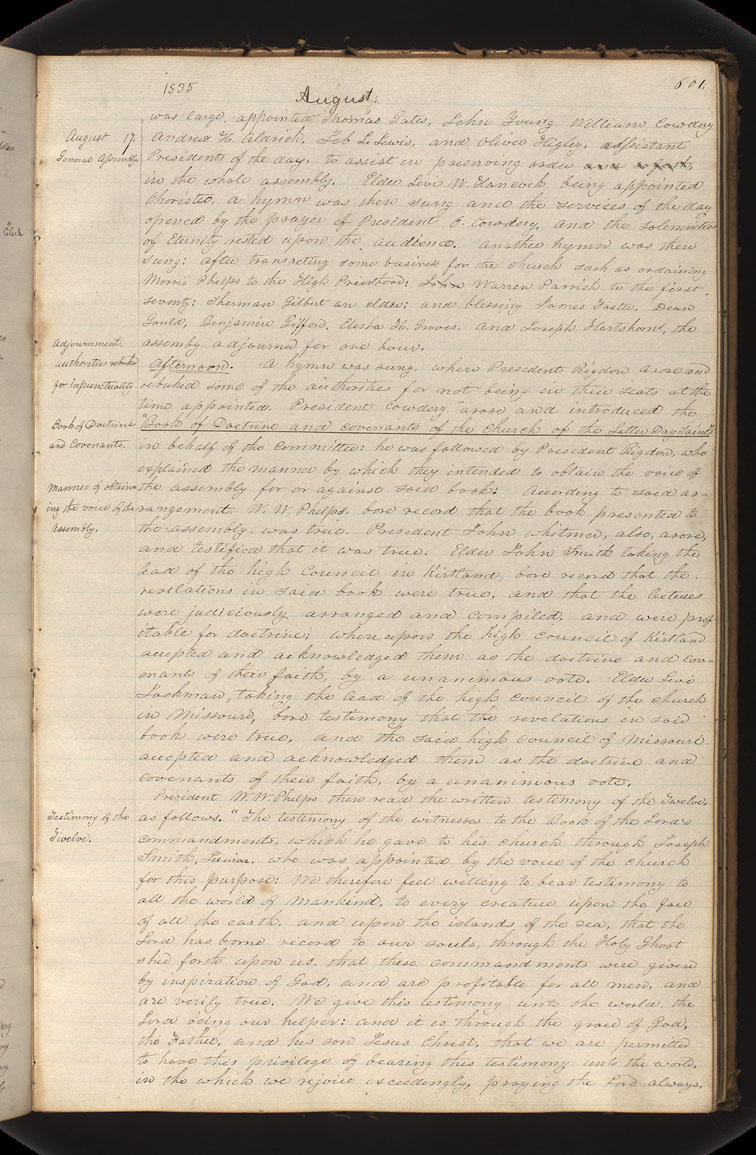 1835
August.
601.
was large, appointed Thomas Gates, John Young William Cowdery
August 17
General Assembly
Andrew H. Aldrich, Job L. Lewis, and Oliver Higley, assistant
Presidents of the day, to assist in preserving order
in the whole assembly. Elder Levi W. Hancock being appointed
chorister, a hymn was then sung and the services of the day
opened by the prayer of President O. Cowdery, and the solemnities
of Eternity rested upon the audience. Another hymn was then
sung: after transacting some business for the church such as ordaining
Morris Phelps to the High Priesthood; John Warren Parrish to the first
seventy; Sherman Gilbert an elder; and blessing James Foster, Dean
Gould, Benjamin Gifford, Elisha H. Groves, and Joseph Hartshorn, the
assembly adjourned for one hour.
Adjournment.
authorities rebuked
for inpunctuality
Afternoon. A hymn was sung, when President Rigdon arose and
rebuked some of the authorities for not being in their seats at the
time appointed. President Cowdery arose and introduced the
Book of Doctrine
and Covenants.
"Book of Doctrine and covenants of the church of the Latter Day Saints"
in behalf of the committee: he was followed by President Rigdon, who
explained the manner by which they intended to obtain the voice of
Manner of obtain-
ing the voice of the
Assembly.
the assembly for or against said book: According to said ar-
rangement W. W. Phelps, bore record that the book presented to
the assembly, was true. President John Whitmer, also, arose,
and testified that it was true. Elder John Smith taking the
lead of the high council in Kirtland, bore record that the
revelations in said book were true, and that the lectures
were judiciously arranged and compiled, and were prof-
itable for doctrine; whereupon the high council of Kirtland
accepted and acknowledged them as the doctrine and cov-
enants of their faith, by a unanimous vote. Elder Levi
Jackman, taking the lead of the high council of the church
in Missouri, bore testimony that the revelations in said
book were true, and the said high council of Missouri
accepted and acknowledged them as the doctrine and
covenants of their faith, by a unanimous vote.
President W. W. Phelps then read the written testimony of the Twelve,
Testimony of the
Twelve.
as follows. "The testimony of the witnesses to the Book of the Lord's
commandments, which he gave to his church through Joseph
Smith, Junior, who was appointed by the voice of the church
for this purpose: We therefore feel willing to bear testimony to
all the world of mankind, to every creature upon the face
of all the earth, and upon the islands of the sea, that the
Lord has borne record to our souls, through the Holy Ghost
shed forth upon us, that these commandments were given
by inspiration of God, and are profitable for all men, and
are verily true. We give this testimony unto the world, the
Lord being our helper: and it is through the grace of God,
the Father, and his son Jesus Christ, that we are permitted
to have this privilege of bearing this testimony unto the world,
in the which we rejoice exceedingly, praying the Lord always,